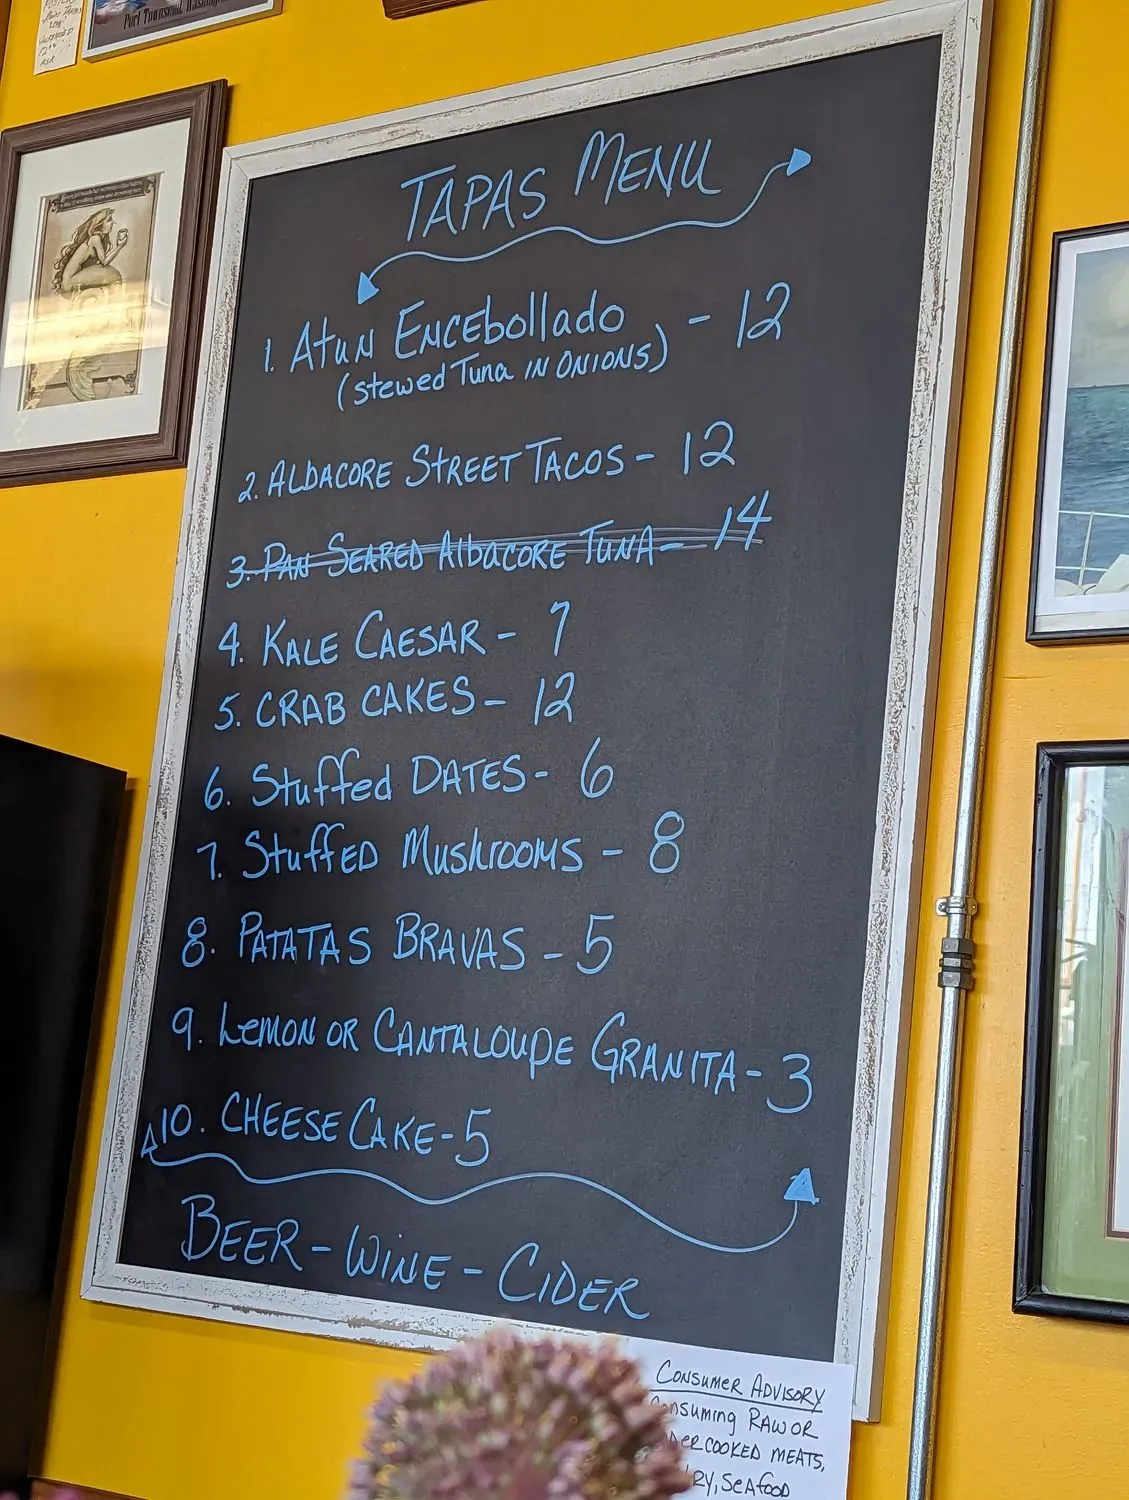 Port Townsend, Washington
TAPAS MENU
1. Atun Encebollado - 12
(stewed Tuna in Onions)
2. ALBACORE STREET TACOS - 12
3. PAN SEARED AlbACORE TUNA - 14
4. KALE CAESAR - 7
5. CRAB CAKES - 12
6. Stuffed DATES - 6
7. StuffED MushrOOMS - 8
8. PATATAS BRAVAS - 5
9. LEMON OR CANTALOUPE GRANITA - 3
10. CHEESE CAKE - 5
BEER - WINE - CIDER
CONSUMER ADVISORY
RAW OR
COOKED MEATS,
SEAFOOD